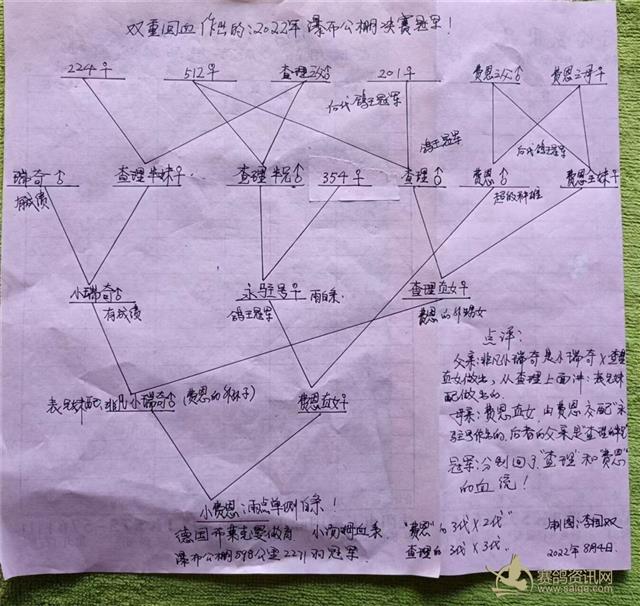 双重回血作出的:2022年瀑布公棚决赛冠军!
224♀ 512♀ 查理之父♂ 201♀ 费恩之父♂ 费恩之母♀
后代鸽王冠军
鸽王冠军 后代鸽王冠军
瑞奇♂ 查理半妹♀ 查理半兄♂ 354♀ 查理♂ 费恩♂ 费恩全妹♀
有成绩 超级种雄
小瑞奇♂ 永驻号♀ 雨白条 查理直女♀
有成绩 鸽王冠军 费恩的外甥女
点评:
父亲:非凡小瑞奇是小瑞奇×查理
直女做出,从查理上面讲:表兄妹
配做出的.
表兄妹配:非凡小瑞奇♂(费恩的外孙子) 费恩直女♀
母亲:费恩直女,由费恩交配"永
驻号"作出的,后者的父亲是"查理的半兄"
冠军:分别回了"查理"和"费恩"
的血统!
小费恩:雨点单侧白条!
德国布莱克曼做育 小两拇血系
瀑布公棚598公里2271羽冠军
"费恩"的3代×2代"
查理的"3代×3代"
制图:李国双
2022年8月4日.
赛鸽资讯网
www.saige.com